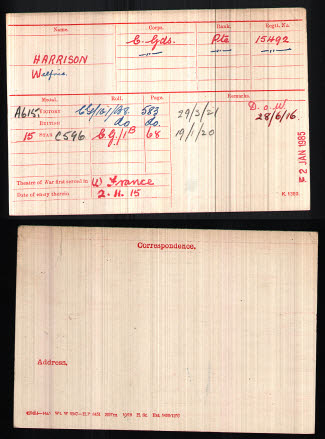 Name. Corps. Rank. Regtl. No.
HARRISON C. Gds. Pte 15492
Wilfred.
Medal. Roll. Page. Remarks.
A615. VICTORY CG/101/ 583 29/3/21 D. of W.
BRITISH do. do. 28/6/16.
15 STAR C596 C.G./1B 68 19/1/20
Theatre of War first served in (1) France
Date of entry therein 2.11.15 K. 1380.
2 JAN 1985
Correspondence.
Address.